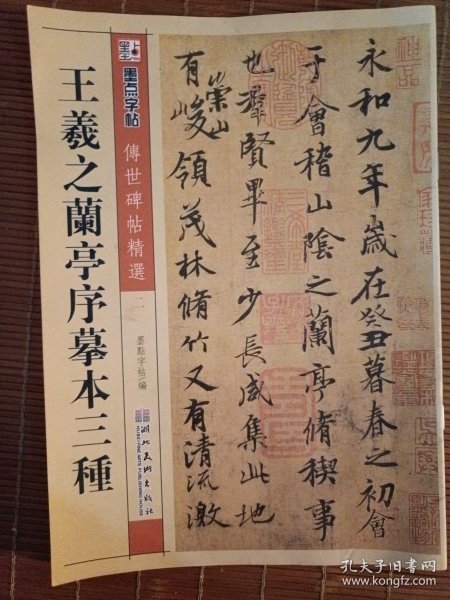 墨点
墨点字帖
傳世碑帖精選
二
墨點字帖 編
湖北美術出版社
HUBEI FINE ARTS PUBLISHING HOUSE
王羲之蘭亭序摹本三種
永和九年歲在癸丑暮春之初會
于會稽山陰之蘭亭脩稧事
也羣賢畢至少長咸集此地
有崇山峻領茂林脩竹又有清流激
孔夫子旧书网
www.kongfz.com